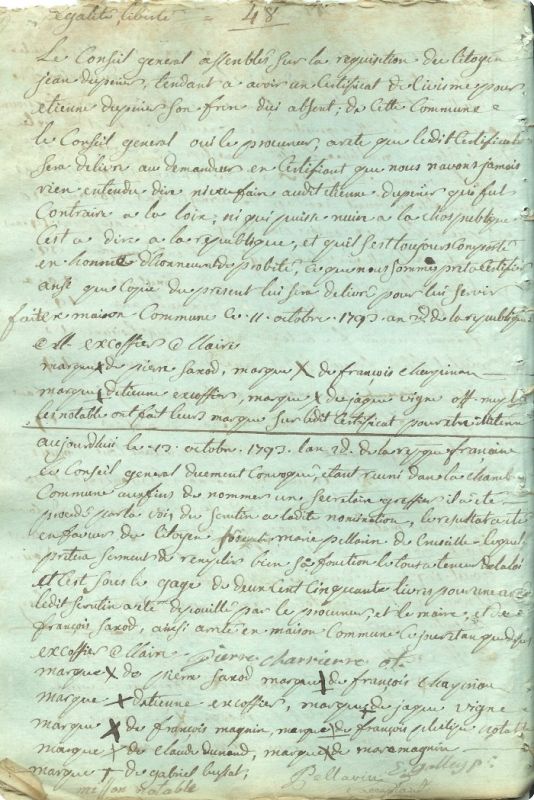 égalité, liberté = 48
Le Conseil general assemblés sur la requisition du Citoyen
jean dupuier, tendant a avoir un Certificat de Civisme pour
etienne dupuier son frere dici absent; de Cette Commune =
le Conseil general oui le procureur, arete que ledit Certificat
Sera delivré au demandeur en Certifiant que nous navons jamais
rien entendu dire ni vu faire audit etienne dupuier qui fut
Contraire a la loix; ni qui puisse nuire a la Chos publique
Cest a dire a la republique, et quil sest toujours Comporté
en homme dhonneur et de probité, Ce que nous sommes pret a Certifier
ansi que Copie du present lui sera delivré pour lui Servir
fait en maison Commune Ce 11. octobre 1793 an 2d. de la republique
excoffier Maire
marque X de pierre saxod, marque X de françois
marque X detienne excoffier, marque X de jaque vigne off. mu
Les notable ont fait leurs marque sur ledit Certificat pour etre
aujourdhui le 13. octobre 1793. lan 2d. de la rep que francaise
Le Conseil general duement Convoqué, etant reuni dans la chambre
Commune aux fins de nommer un Secretaire greffier il a eté
procedé par la voix du Scrutin a ladite nomination, le resultat a eté
en faveur du Citoyen Joseph marie pellarin de Cruseille lequel
preta serment de remplir bien sa fonction le tout a teneur de la loi
et Cest sous le gage de deux Cent Cinquante livres pour une année
ledit scrutin a eté depouillé par le procureur, et le maire, et de
françois saxod, ainsi areté en maison Commune le jour et an que dessus
excoffier Maire pierre charriere of.
marque X de pierre saxod marque X de françois
marque X detienne excoffier, marque X de jaque vigne
marque X de françois magnin, marque X de françois philipe notable
marque X de Claude dunand, marque X de marc magnin
marque X de gabriel bussat;
notable Pellarin